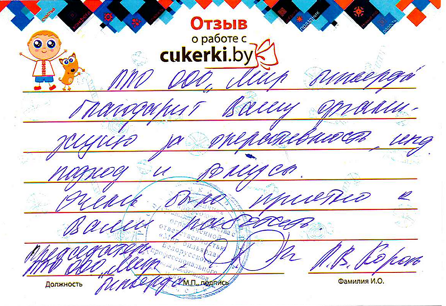 Отзыв
о работе с
cukerki.by
ППО ООО "Мир
благодарит Вашу органи-
зацию за оперативность, инд.
подход и бонусы.
Очень было приятно с
Вами работать
председатель
ППО ООО "Мир
Должность
М.П., подпись
Фамилия И.О.